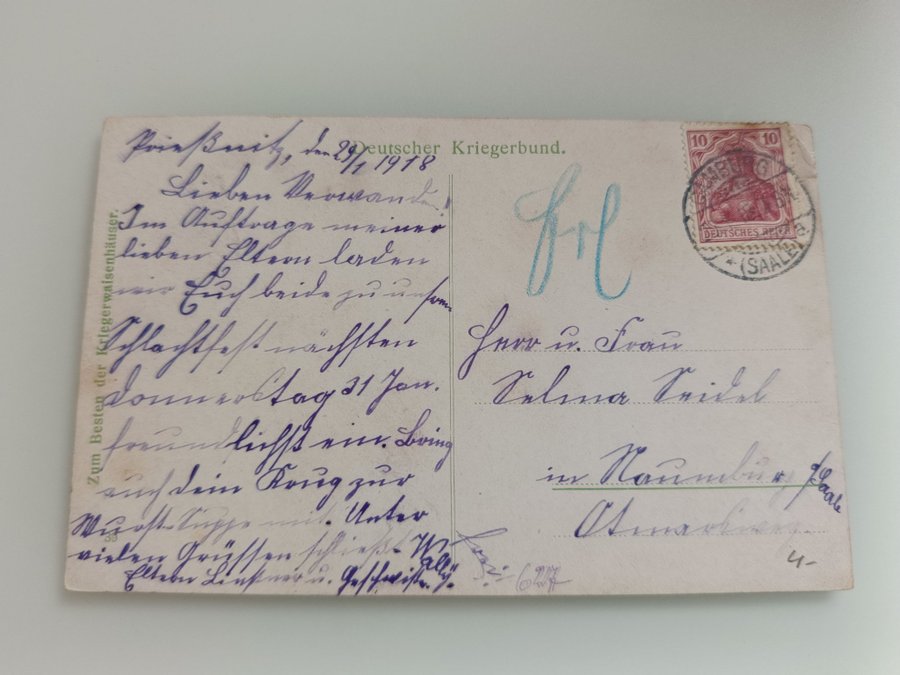 Deutscher Kriegerbund.
Zum Besten der Kriegerwaisenhäuser.
Prießnitz, den 29/1 1918
Lieben Verwandte!
Im Auftrage meiner
lieben Eltern laden
wir Euch beide zu unsrem
Schlachtfest nächsten
Donnerstag 31 Jan.
freundlichst ein. Bring
auch dein Krug zur
Wurst-Suppe mit. Unter
vielen Grüssen schließt Wally
Eltern u. Geschwister.
10 10
DEUTSCHES REICH
(SAALE)
Herr u. Frau
Selma Seidel
in Naumburg a/Saale
Otmarsweg
4-